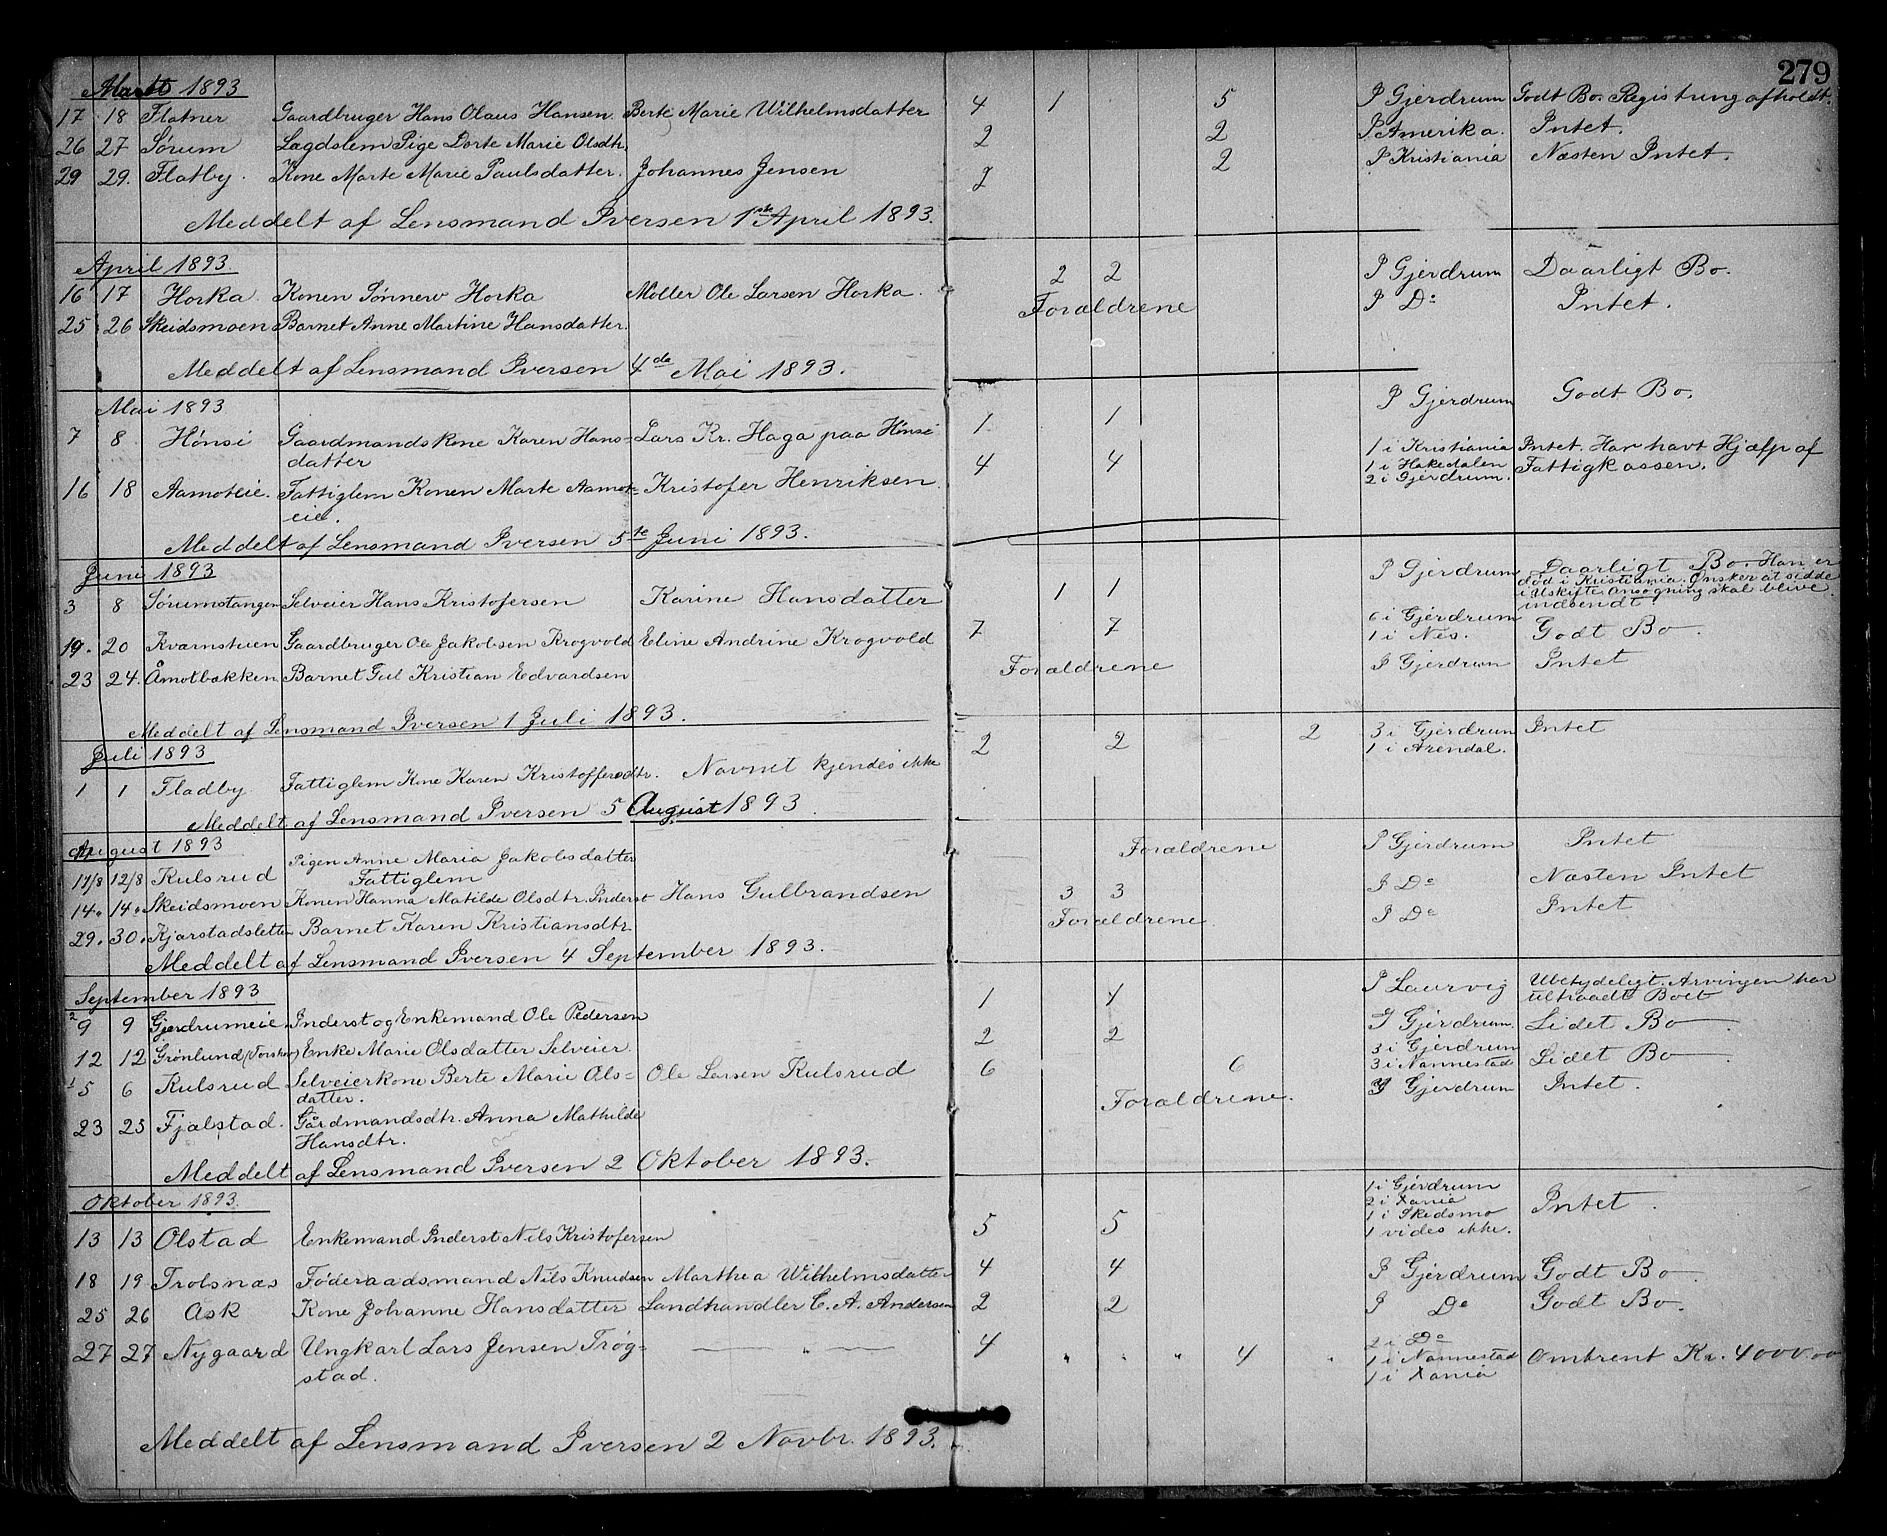 279
Martz 1893
17 18 Flatner Gaardbruger Hans Olaus Hansen. Berte Marie Wilhelmsdatter 4 1 5 I Gjerdrum Godt Bo. Registrering afholdt.
26 27 Sørum Lægdslem Pige Dorte Marie Olsdtr. 2 2 I Amerika. Intet.
29 29. Flatby. Kone Marte Marie Paulsdatter. Johannes Jensen 2 2 I Kristiania Næsten Intet.
Meddelt af Lensmand Iversen 1ste April 1893.
April 1893.
16 17 Horka. Konen Horka Møller Ole Larsen Horka. 2 2 I Gjerdrum Daarligt Bo.
25 26 Skeidsmoen Barnet Anne Martine Hansdatter. Forældrene I Do Intet.
Meddelt af Lensmand Iversen 4de Mai 1893.
Mai 1893
7 8 Hønsi Gaardmandskone Karen Hans= Lars Kr. Haga paa Hønsi 1 1 I Gjerdrum Godt Bo.
datter
16 18 Aamoteie. Fattiglem Konen Marte Aamot= Kristofer Henriksen 4 4 1 i Kristiania Intet. Har havt Hjælp af
eie. 1 i Hakedalen Fattigkassen.
2 i Gjerdrum.
Meddelt af Lensmand Iversen 5te Juni 1893.
Juni 1893
3 8 Sørumstangen Selveier Hans Kristofersen Karine Hansdatter 1 1 I Gjerdrum Daarligt Bo. Han er
død i Kristiania. Ønsker at sidde
i Uskifte. Ansøgning skal blive
indsendt.
19. 20 Kværnstuen Gaardbruger Ole Jakobsen Krogvold Eline Andrine Krogvold 7 7 6 i Gjerdrum Godt Bo.
1 i Nes.
23 24. Åmotbakken Barnet Gul Kristian Edvardsen Forældrene I Gjerdrum Intet
Meddelt af Lensmand Iversen 1 Juli 1893.
Juli 1893
1 1 Fladby Fattiglem Kone Karen Kristoffersdtr. Navnet kjendes ikke 2 2 2 3 i Gjerdrum Intet
1 i Arendal.
Meddelt af Lensmand Iversen 5 August 1893.
August 1893
11/8 12/8 Kulsrud Pigen Anne Maria Jakobsdatter Forældrene I Gjerdrum Intet
Fattiglem
14. 14. Skeidsmoen Konen Hanna Matilde Olsdtr. Inderst Hans Gulbrandsen 3 3 I Do Næsten Intet
29. 30. Kjærstadsletten Barnet Karen Kristiansdtr. Forældrene. I Do Intet
Meddelt af Lensmand Iversen 4 September 1893.
September 1893
2 9 9 Gjerdrumeie. Inderst og Enkemand Ole Pedersen 1 4 I Laurvig Ubetydeligt. Arvingen har
tiltraadt Boet
12 12 Grønlund Enke Marie Olsdatter Selveier. 2 2 I Gjerdrum. Lidet Bo
1 5 6 Kulsrud Selveierkone Berte Marie Ols= Ole Larsen Kulsrud 6 6 3 i Gjerdrum Lidet Bo
datter. 3 i Nannestad
23 25 Fjælstad. Gårdmandsdtr. Anna Mathilde Forældrene. I Gjerdrum Intet.
Hansdtr.
Meddelt af Lensmand Iversen 2 Oktober 1893.
Oktober 1893.
13 13 Olstad Enkemand Inderst Nils Kristofersen 5 5 1 i Gjerdrum Intet.
2 i Xania
1 i Skedsmo
1 vides ikke.
18 19 Trolsnæs Føderaadsmand Nils Knudsen Marthea Wilhelmsdatter 4 4 I Gjerdrum Godt Bo.
25 26 Ask Kone Johanne Hansdatter Landhandler C. A. Andersen 2 2 I Do Godt Bo.
27 27 Nygaard Ungkarl Lars Jensen Trøg= — " — 4 " " " 4 " 2 i Do
stad. 1 i Nannestad Omtrent Kr. 4000.00
1 i Xania
Meddelt af Lensmand Iversen 2 Novbr. 1893.